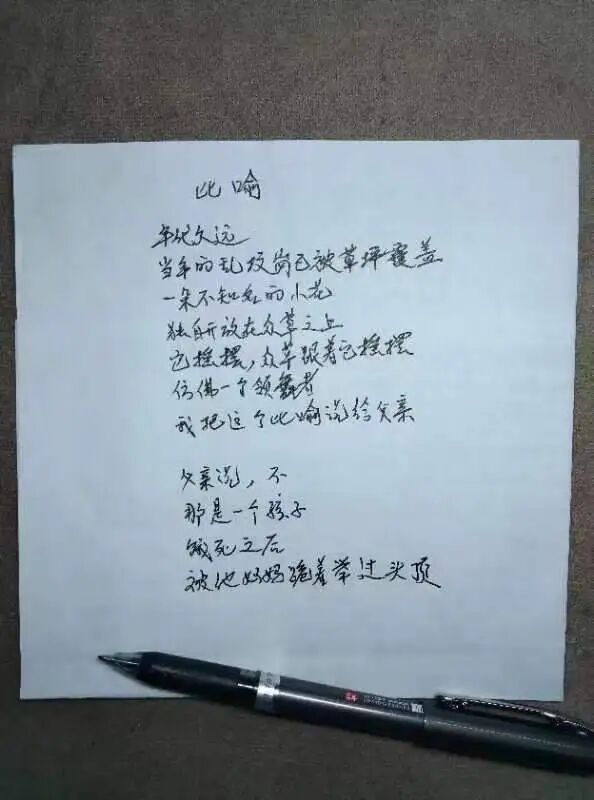 比喻
年代久远
当年的乱坟岗已被草坪覆盖
一朵不知名的小花
独自开放在众草之上
它摇摆，众草跟着它摇摆
仿佛一个领舞者
我把这个比喻说给父亲
父亲说，不
那是一个孩子
饿死之后
被他妈妈跪着举过头顶